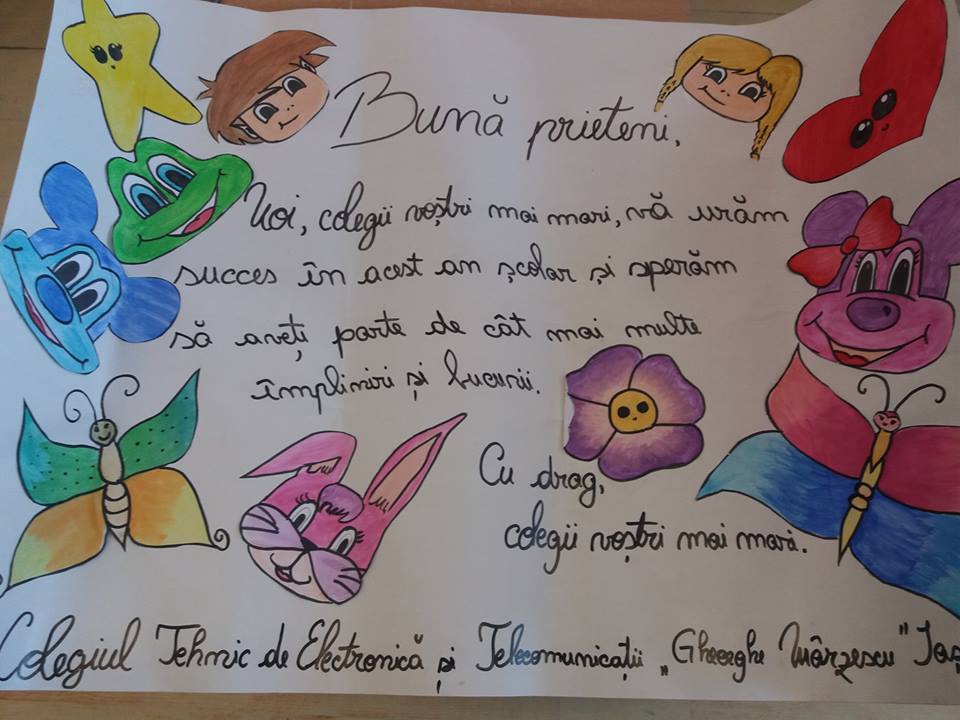 Bună prieteni,
Noi, colegii voștri mai mari, vă urăm
succes în acest an școlar și sperăm
să aveți parte de cât mai multe
împliniri și bucurii.
Cu drag,
colegii voștri mai mari.
Colegiul Tehnic de Electronică și Telecomunicații „Gheorghe Mârzescu" Iaș